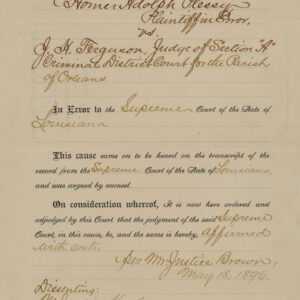 Homer Adolph Plessy
Plaintiff in Error,
vs.
J. H. Ferguson, Judge of Section "A"
Criminal District Court for the Parish
of Orleans
In Error to the Supreme Court of the State of
Louisiana
This cause came on to be heard on the transcript of the
record from the Supreme Court of the State of Louisiana,
and was argued by counsel.
On consideration whereof, It is now here ordered and
adjudged by this Court, that the judgment of the said Supreme
Court, in this cause, be, and the same is hereby, affirmed
with costs.
Per Mr. Justice Brown,
May 18, 1896.
Dissenting:
Mr.